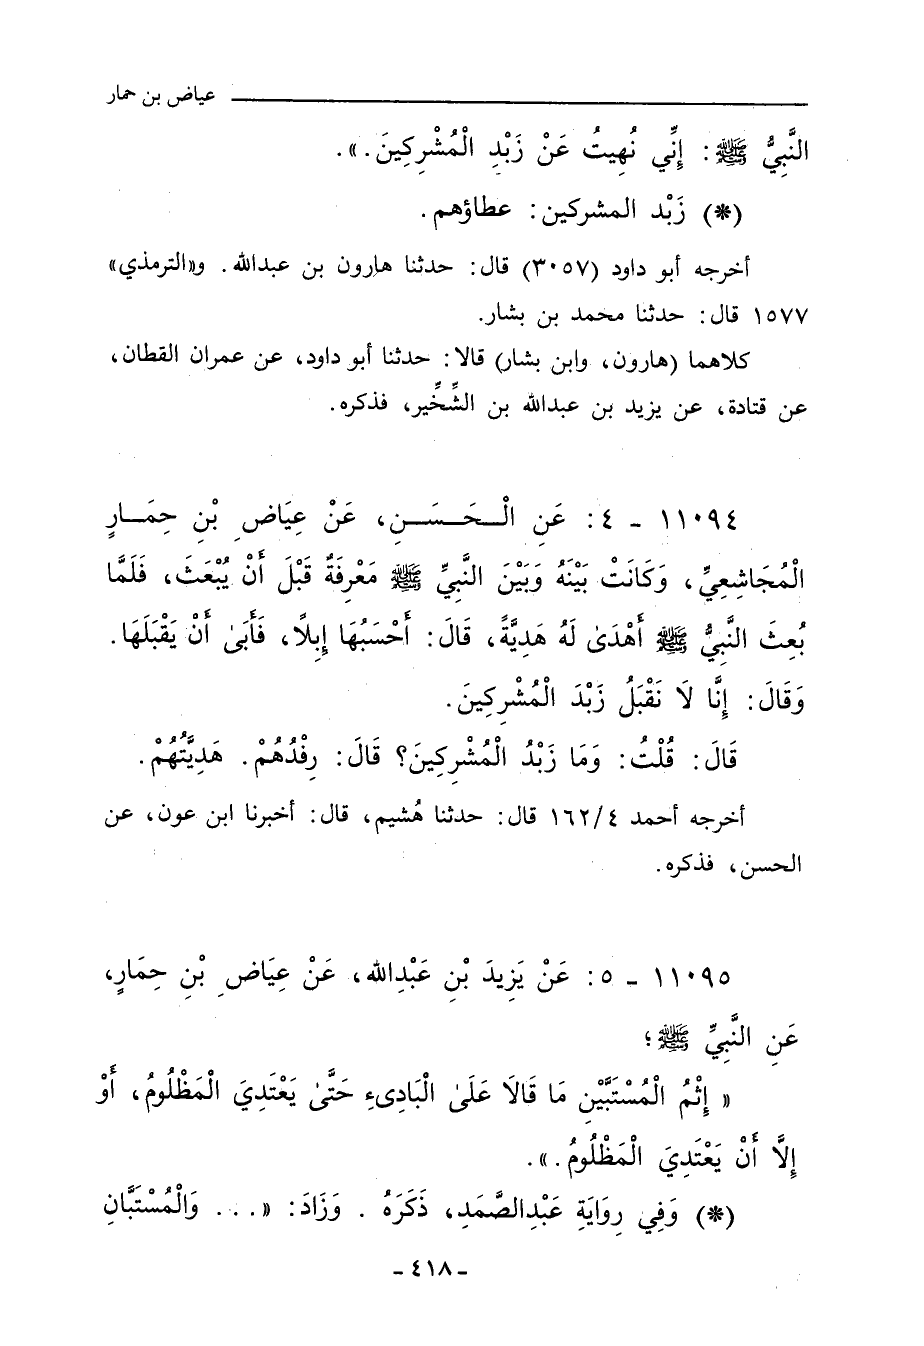 عياض بن حمار
النَّبِيُّ ﷺ: إِنِّي نُهِيتُ عَنْ زَبْدِ الْمُشْرِكِينَ.».
(*) زَبْد المشركين: عطاؤهم.
أخرجه أبو داود (٣٠٥٧) قال: حدثنا هارون بن عبدالله. و«الترمذي»
١٥٧٧ قال: حدثنا محمد بن بشار.
كلاهما (هارون، وابن بشار) قالا: حدثنا أبو داود، عن عمران القطان،
عن قتادة، عن يزيد بن عبدالله بن الشِّخِّير، فذكره.
١١٠٩٤ - ٤: عَنِ الْحَسَنِ، عَنْ عِيَاضِ بْنِ حِمَارٍ
الْمُجَاشِعِيِّ، وَكَانَتْ بَيْنَهُ وَبَيْنَ النَّبِيِّ ﷺ مَعْرِفَةٌ قَبْلَ أَنْ يُبْعَثَ، فَلَمَّا
بُعِثَ النَّبِيُّ ﷺ أَهْدَىٰ لَهُ هَدِيَّةً، قَالَ: أَحْسَبُهَا إِبِلًا، فَأَبَىٰ أَنْ يَقْبَلَهَا.
وَقَالَ: إِنَّا لَا نَقْبَلُ زَبْدَ الْمُشْرِكِينَ.
قَالَ: قُلْتُ: وَمَا زَبْدُ الْمُشْرِكِينَ؟ قَالَ: رِفْدُهُمْ. هَدِيَّتُهُمْ.
أخرجه أحمد ١٦٢/٤ قال: حدثنا هُشيم، قال: أخبرنا ابن عون، عن
الحسن، فذكره.
١١٠٩٥ - ٥: عَنْ يَزِيدَ بْنِ عَبْدِالله، عَنْ عِيَاضِ بْنِ حِمَارٍ،
عَنِ النَّبِيِّ ﷺ؛
« إِثْمُ الْمُسْتَبَّيْنِ مَا قَالَا عَلَىٰ الْبَادِىءِ حَتَّىٰ يَعْتَدِيَ الْمَظْلُومُ، أَوْ
إِلَّا أَنْ يَعْتَدِيَ الْمَظْلُومُ.».
(*) وَفِي رِوَايَةِ عَبْدِالصَّمَدِ، ذَكَرَهُ. وَزَادَ: «... وَالْمُسْتَبَّانِ
- ٤١٨ -